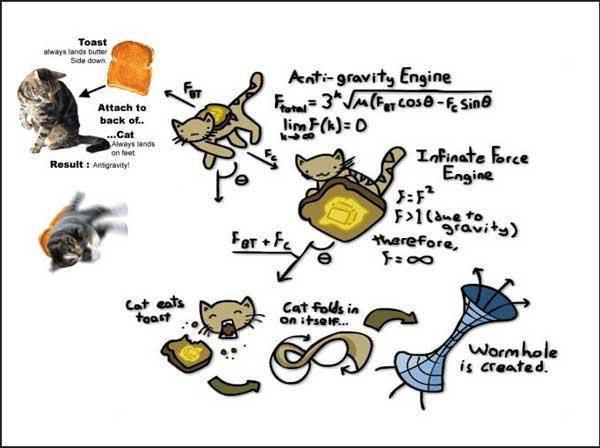 Toast
always lands butter
Side down.
Attach to
back of..
...Cat
Always lands
on feet.
Result : Antigravity!
F_BT
F_c
θ
Anti-gravity Engine
F_total = 3^k √μ(F_BT cosθ - F_c sinθ
lim F(k) = 0
k→∞
Infinate Force
Engine
F=F²
F>1 (due to
gravity)
therefore,
F=∞
F_BT + F_c
θ
Cat eats
toast
Cat folds in
on itself...
Wormhole
is created.